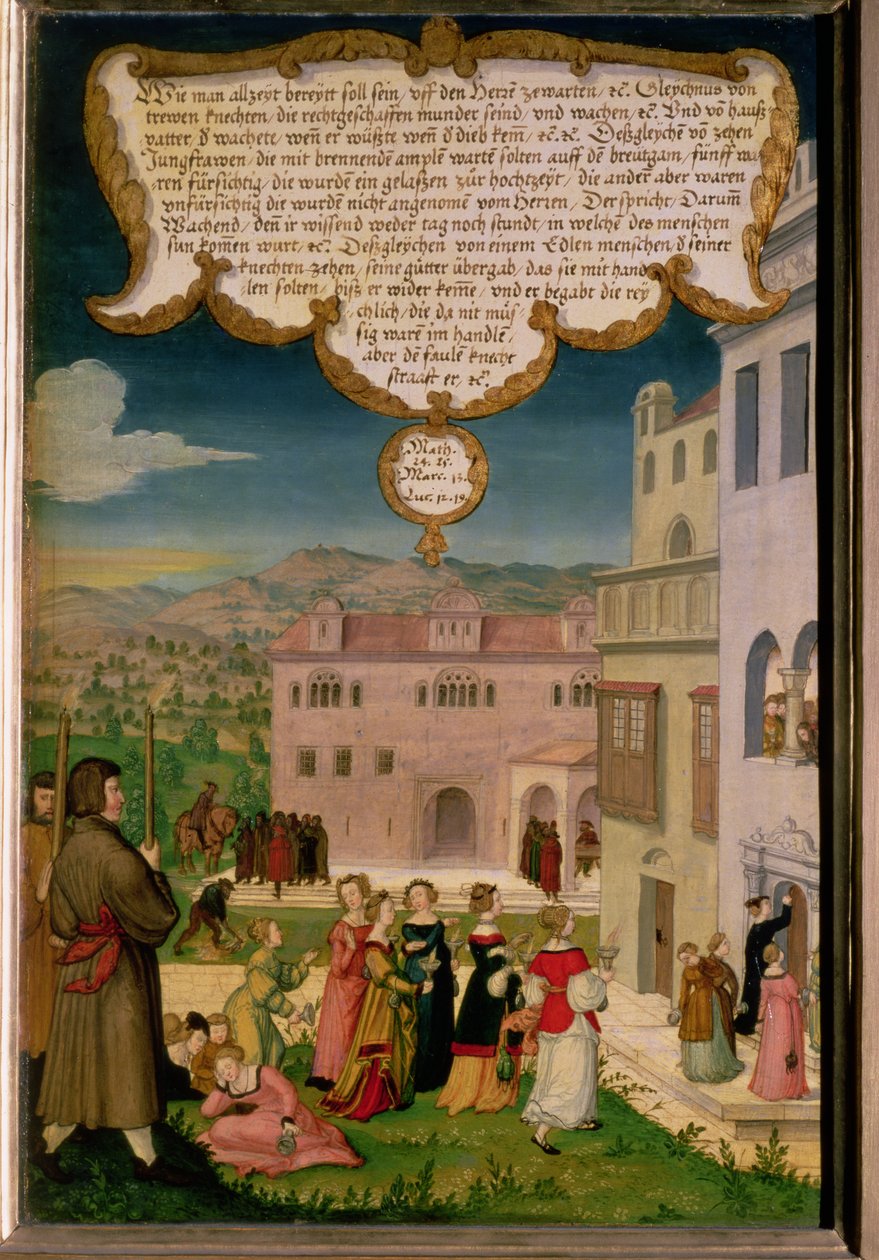 Wie man allzeyt bereytt soll sein / vff den Herrē zewarten / ꝛc̄. Gleychnus von
trewen knechten / die rechtgeschaffen munder seind / vnd wachen / ꝛc̄. Vnd vō hauß-
vatter / đ wachete / wen̄ er wüßte wen̄ đ dieb kem̄ / ꝛc̄. ꝛc̄. Deßgleychē vō zehen
Jungfrawen / die mit brennendē amplē wartē solten auff dē breutgam / fünff wa-
ren fürsichtig / die wurdē ein gelaßzen zůr hochtzeyt / die andeř aber waren
vnfürsichtig die wurdē nicht angenomē vom Herren / Der spricht / Darum̄
Wachend / den̄ ir wissend weder tag noch stundt / in welchē des menschen
sun komen wurt / ꝛc̄. Deßgleychen von einem Edlen menschen / đ seiner
knechten zehen / seine gůtter übergab / das sie mit hand-
len solten / biß er wider kem̄e / vnd er begabt die rey-
chlich / die da nit můs-
sig warē im handlē /
aber dē faulē knecht
straafft er / ꝛc̄.
Math.
24. 25.
Marc. 13.
Luc. 12. 19.